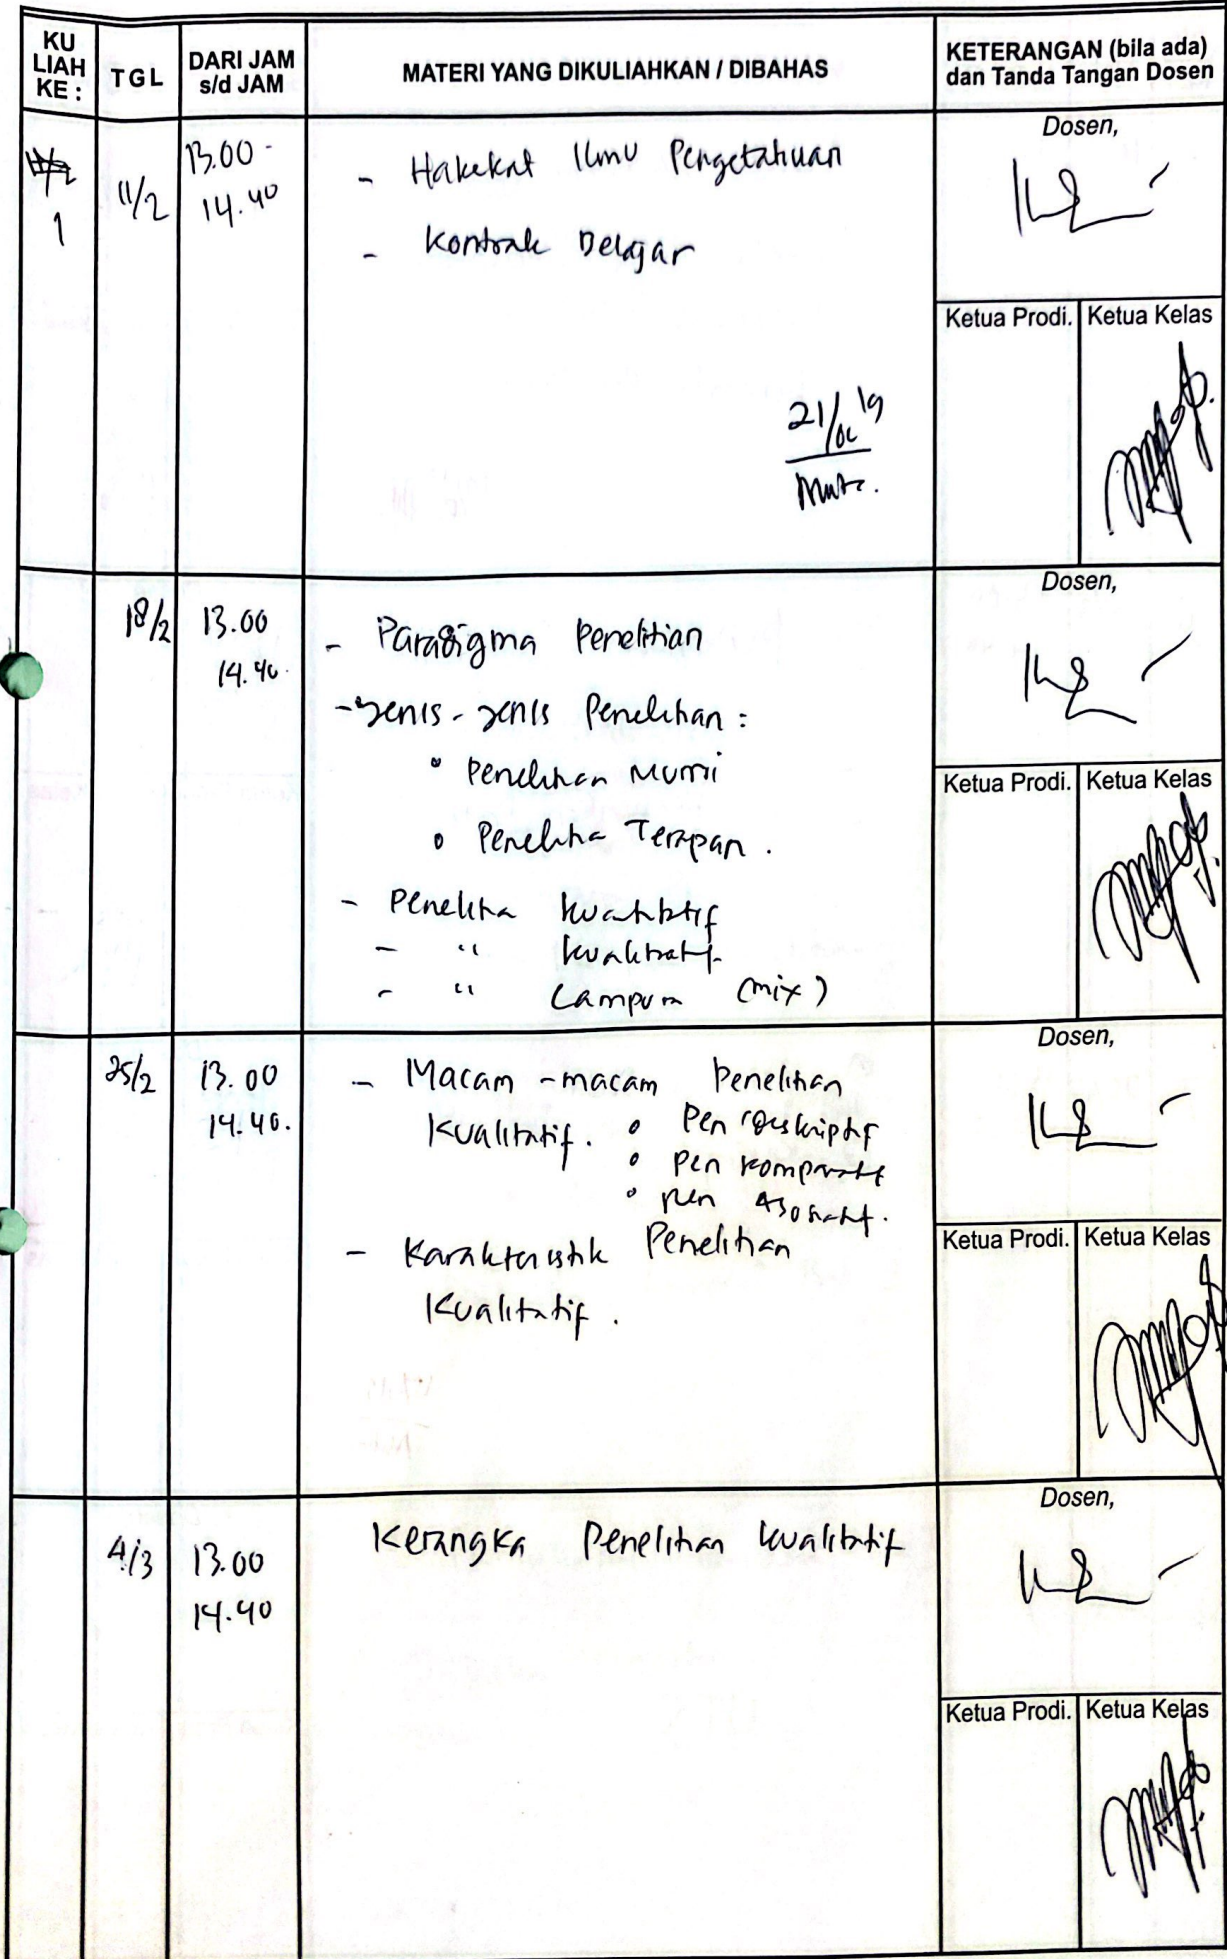 KU LIAH KE :
TGL
DARI JAM s/d JAM
MATERI YANG DIKULIAHKAN / DIBAHAS
KETERANGAN (bila ada) dan Tanda Tangan Dosen
1
11/2
13.00 -
14.40
- Hakekat Ilmu Pengetahuan
- Kontrak Belajar
21/ 19
Dosen,
Ketua Prodi.
Ketua Kelas
18/2
13.00
14.40.
- Paradigma Penelitian
- Jenis - Jenis Penelitian :
° Penelitian Murni
° Penelitian Terapan .
- Penelitian kuantitatif
- " kualitatif
- " Campuran (mix)
Dosen,
Ketua Prodi.
Ketua Kelas
25/2
13.00
14.40.
- Macam - macam Penelitian
Kualitatif . ° Pen deskriptif
° Pen komparatif
° Pen Asosiatif.
- Karakteristik Penelitian
Kualitatif .
Dosen,
Ketua Prodi.
Ketua Kelas
4/3
13.00
14.40
Kerangka Penelitian kualitatif
Dosen,
Ketua Prodi.
Ketua Kelas